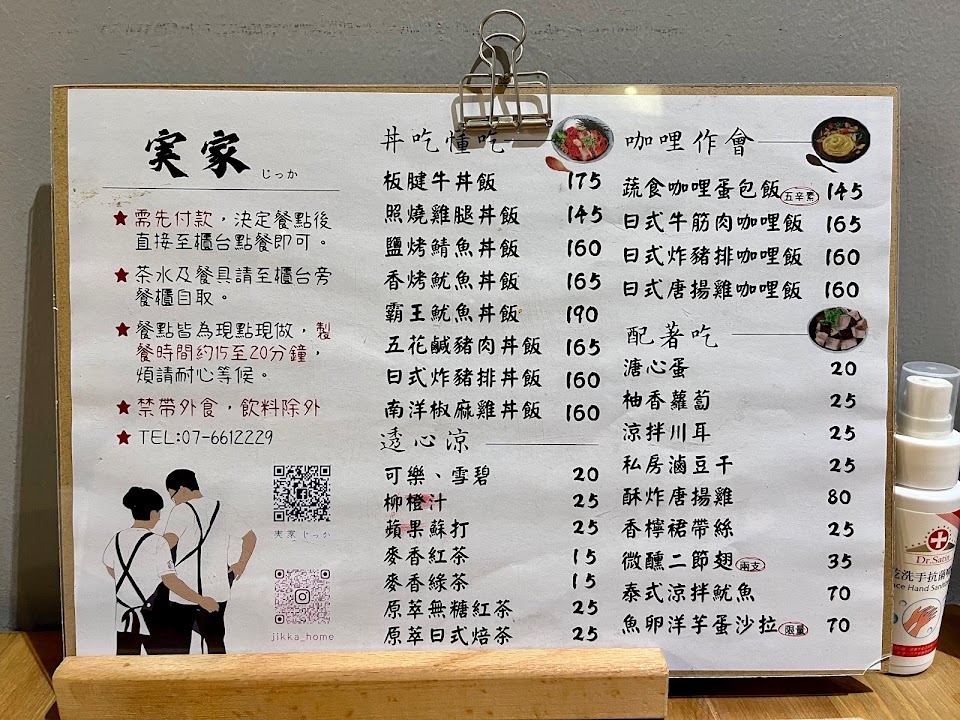 実家
じっか
★ 需先付款，決定餐點後
直接至櫃台點餐即可。
★ 茶水及餐具請至櫃台旁
餐櫃自取。
★ 餐點皆為現點現做，製
餐時間約15至20分鐘，
煩請耐心等候。
★ 禁帶外食，飲料除外
★ TEL:07-6612229
実家 じっか
jikka_home
丼吃懂吃
板腱牛丼飯 175
照燒雞腿丼飯 145
鹽烤鯖魚丼飯 160
香烤魷魚丼飯 165
霸王魷魚丼飯 190
五花鹹豬肉丼飯 165
日式炸豬排丼飯 160
南洋椒麻雞丼飯 160
透心涼
可樂、雪碧 20
柳橙汁 25
蘋果蘇打 25
麥香紅茶 15
麥香綠茶 15
原萃無糖紅茶 25
原萃日式焙茶 25
咖哩作會
蔬食咖哩蛋包飯 五辛素 145
日式牛筋肉咖哩飯 165
日式炸豬排咖哩飯 160
日式唐揚雞咖哩飯 160
配著吃
溏心蛋 20
柚香蘿蔔 25
涼拌川耳 25
私房滷豆干 25
酥炸唐揚雞 80
香檸裙帶絲 25
微醺二節翅 兩支 35
泰式涼拌魷魚 70
魚卵洋芋蛋沙拉 限量 70
Dr.Satin
乾洗手抗菌
Hand Sanitizer